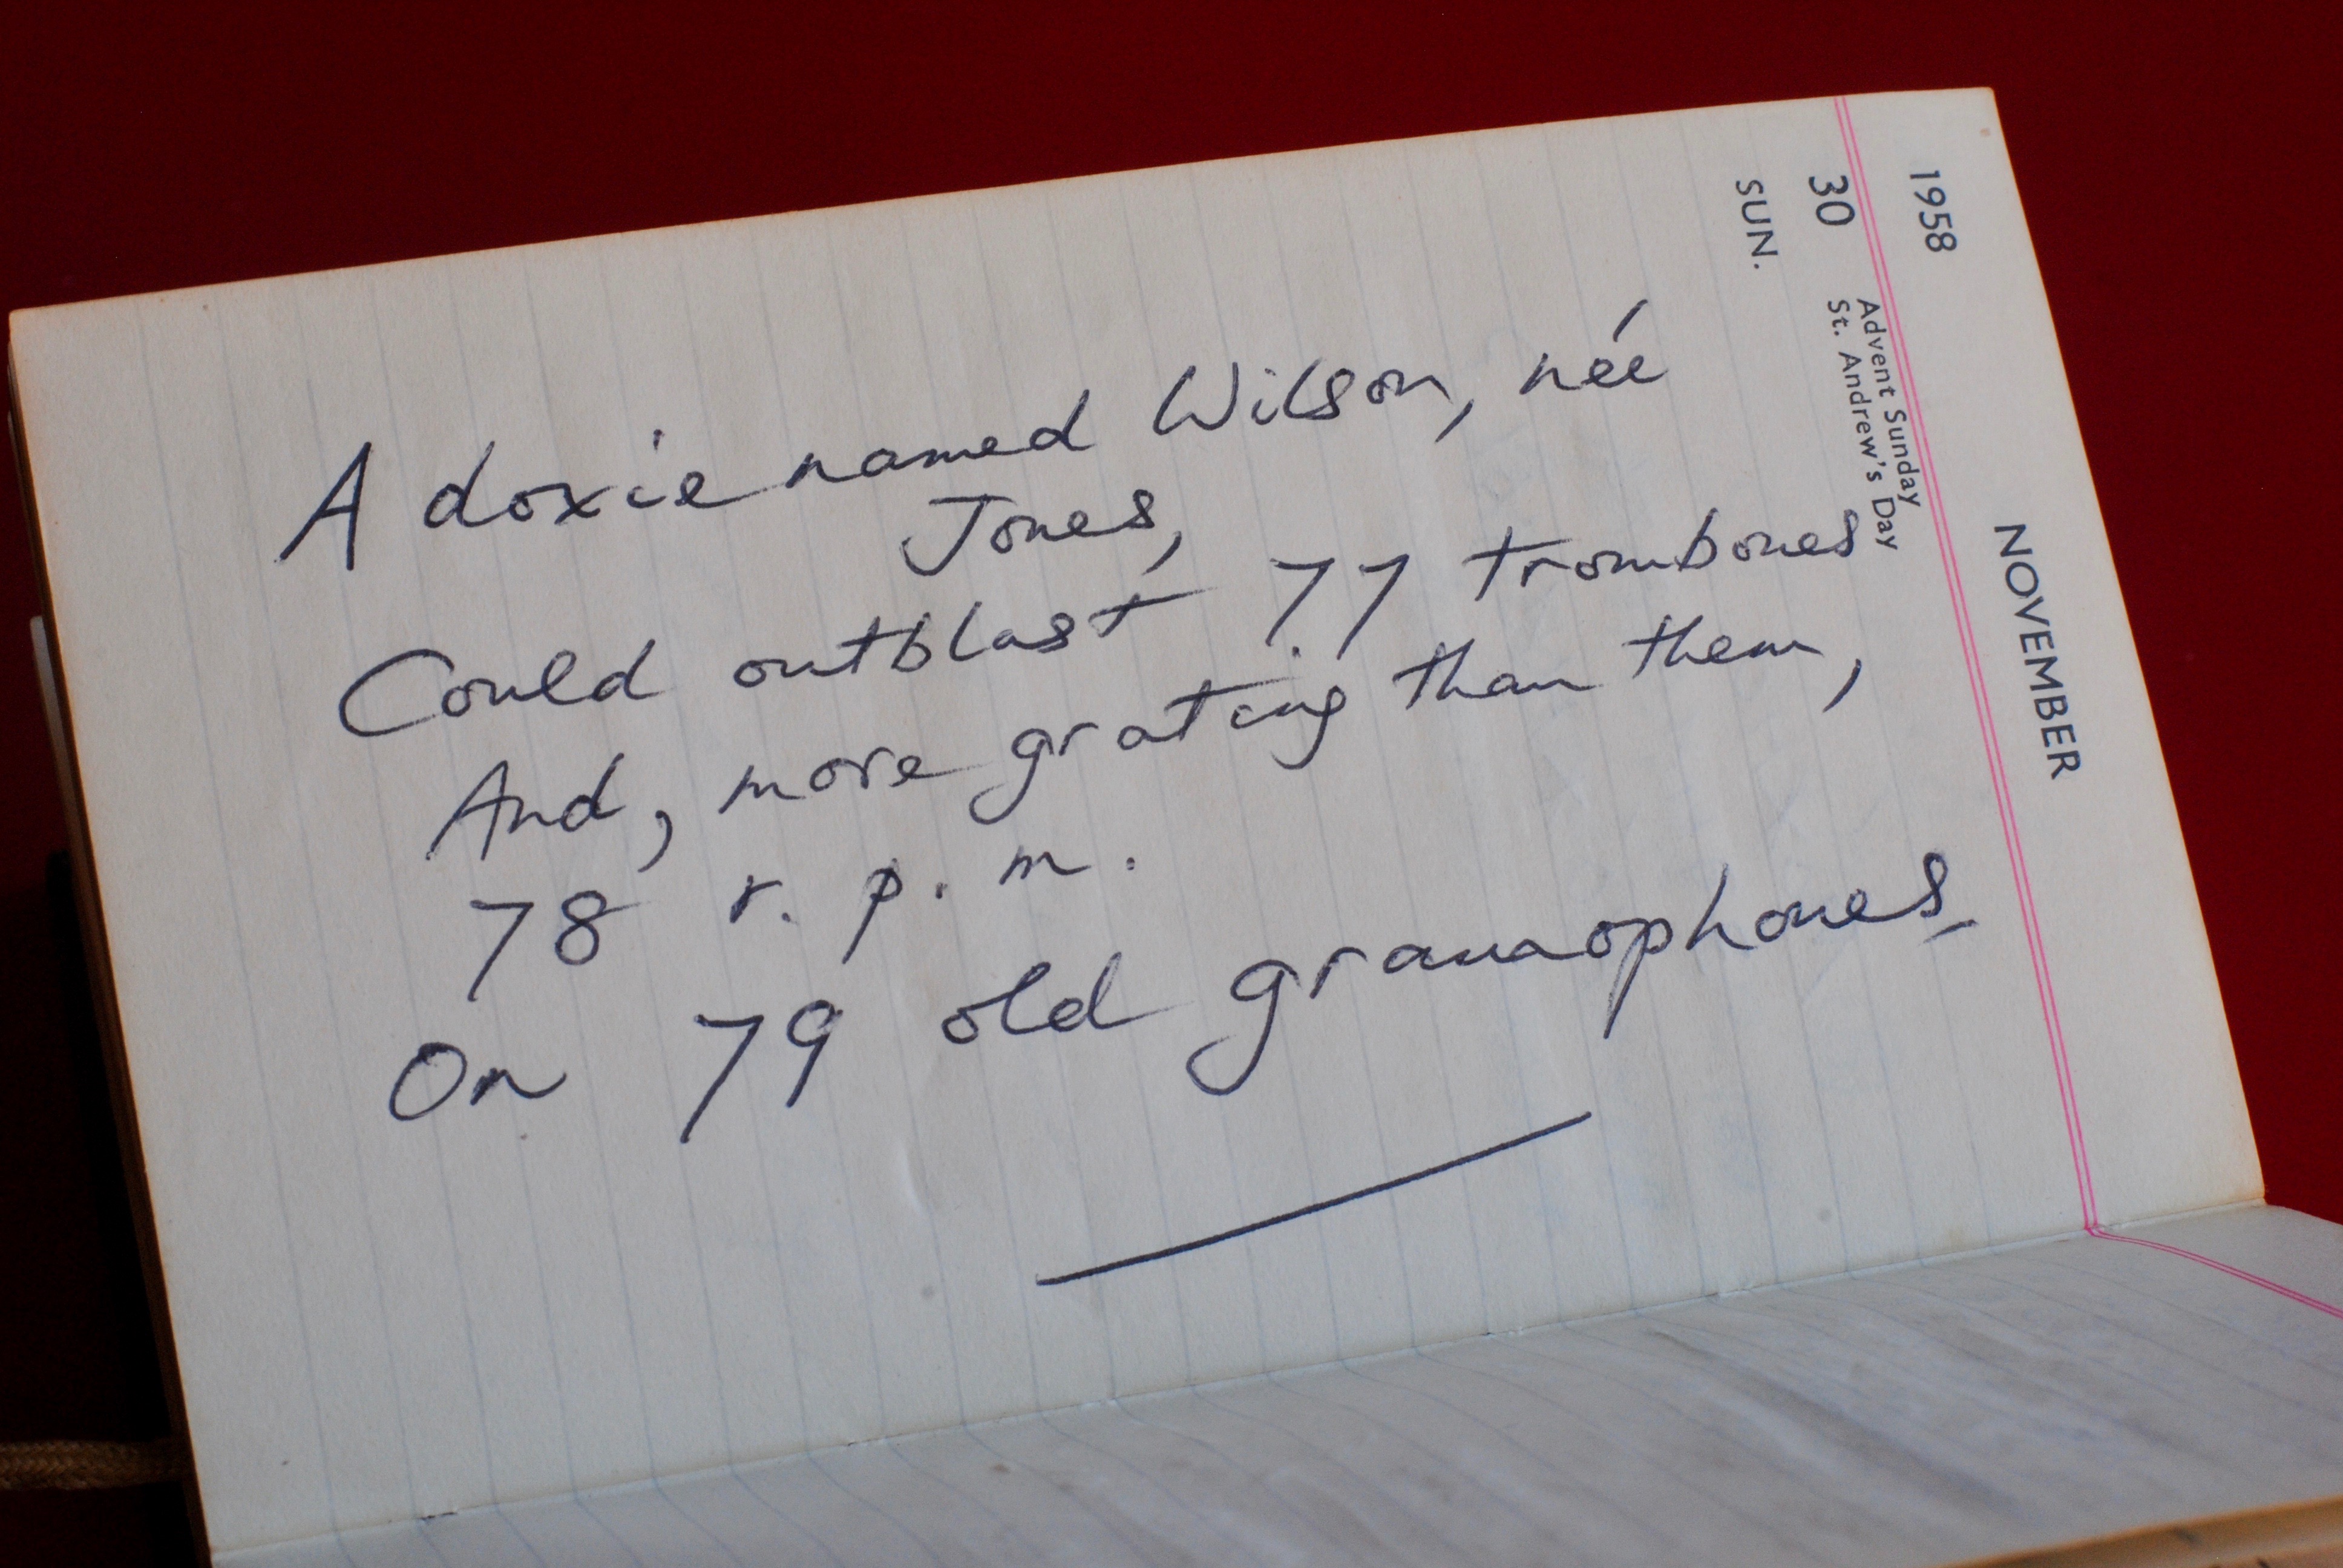 1958
NOVEMBER
30
SUN.
Advent Sunday
St. Andrew's Day
A doxie named Wilson, née
Jones,
Could outblast 77 trombones
And, more grating than them,
78 r. p. m.
On 79 old gramophones.